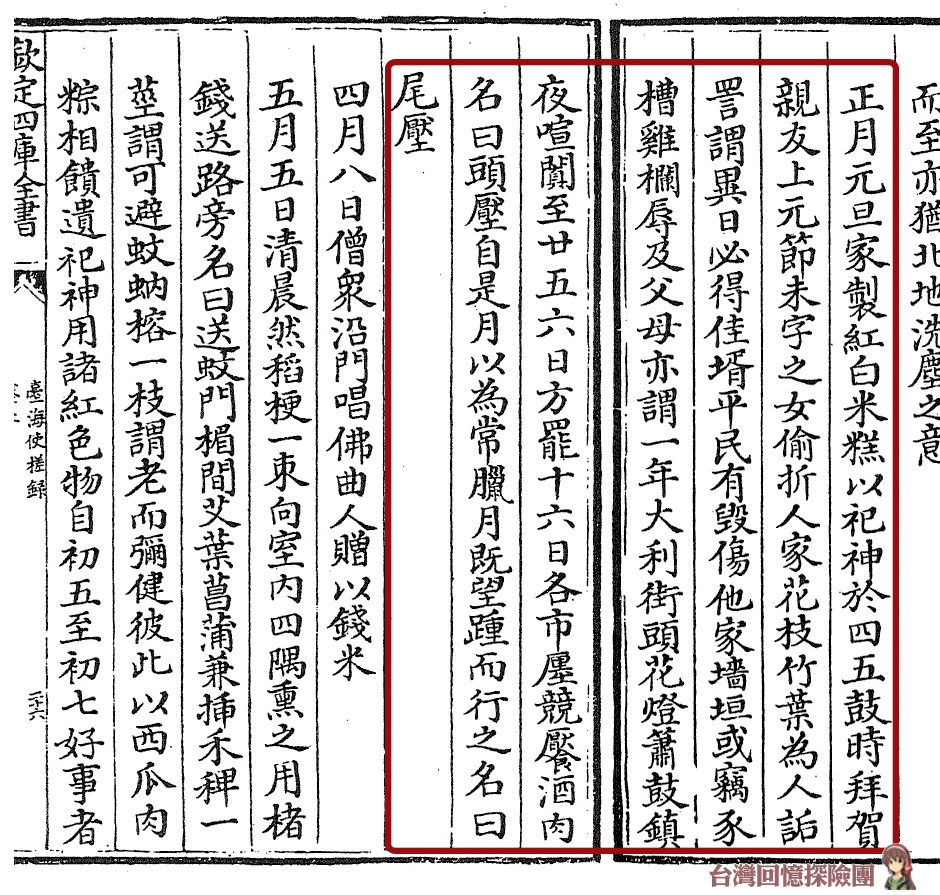 而至亦猶北地洗塵之意
正月元旦家製紅白米糕以祀神於四五鼓時拜賀
親友上元節未字之女偷折人家花枝竹葉為人詬
詈謂異日必得佳壻平民有毀傷他家墻垣或竊豕
槽雞欄辱及父母亦謂一年大利街頭花燈簫鼓鎮
夜喧闐至廿五六日方罷十六日各市廛競饜酒肉
名曰頭壓自是月以為常臘月既望踵而行之名曰
尾壓
四月八日僧衆沿門唱佛曲人贈以錢米
五月五日清晨然稻梗一束向室内四隅熏之用楮
錢送路旁名曰送蚊門楣間艾葉菖蒲兼揷禾稗一
莖謂可避蚊蚋榕一枝謂老而彌健彼此以西瓜肉
粽相饋遺祀神用諸紅色物自初五至初七好事者
欽定四庫全書
臺海使槎録
二十六
台灣回憶探險團